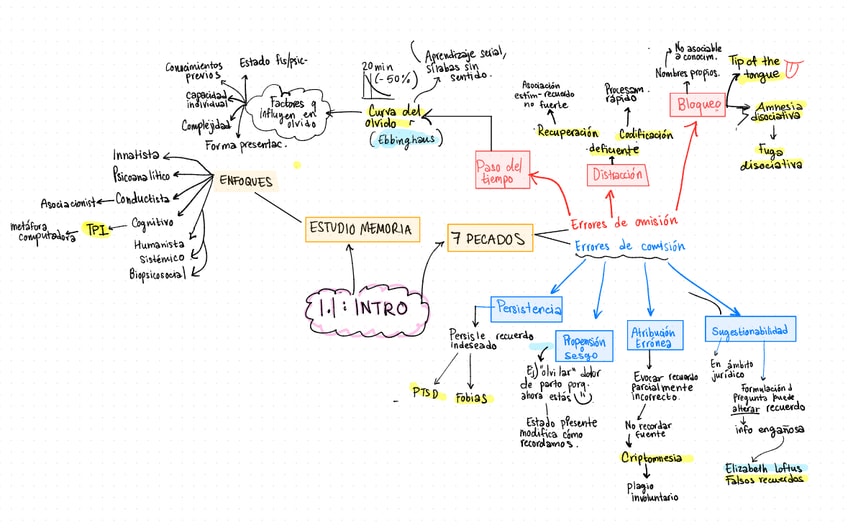 Conocimientos
previos
Estado fis/psic-
capacidad
individual
Complejidad
Forma presentac.
Factores q
influyen en
olvido
20 min
(-50%)
Aprendizaje serial,
sílabas sin
sentido.
Curva del
olvido
(Ebbinghaus)
Asociación
estim-recuerdo
no fuerte
Procesam.
rápido
Recuperación
Codificación
deficiente
No asociable
a conocim.
Nombres propios.
Bloqueo
Tip of the
tongue
Amnesia
disociativa
Fuga
disociativa
Paso del
tiempo
Distracción
Errores de omisión
Errores de comisión
Innatista
Psicoanalítico
Asociacionist
Conductista
metáfora
computadora
TPI
Cognitivo
Humanista
Sistémico
Biopsicosocial
ENFOQUES
ESTUDIO MEMORIA
7 PECADOS
1.1: INTRO
Persistencia
Persiste recuerdo
indeseado
PTSD
Fobias
Propensión
o
sesgo
Ej) "olvilar" dolor
de parto porq.
ahora estás
Estado presente
modifica cómo
recordamos.
Atribución
Errónea
Evocar recuerdo
parcialmente
incorrecto.
No recordar
fuente
Criptomnesia
plagio
involuntario
Sugestionabilidad
En ámbito
jurídico
Formulación d
Pregunta puede
alterar recuerdo
info engañosa
Elizabeth Loftus
Falsos recuerdos